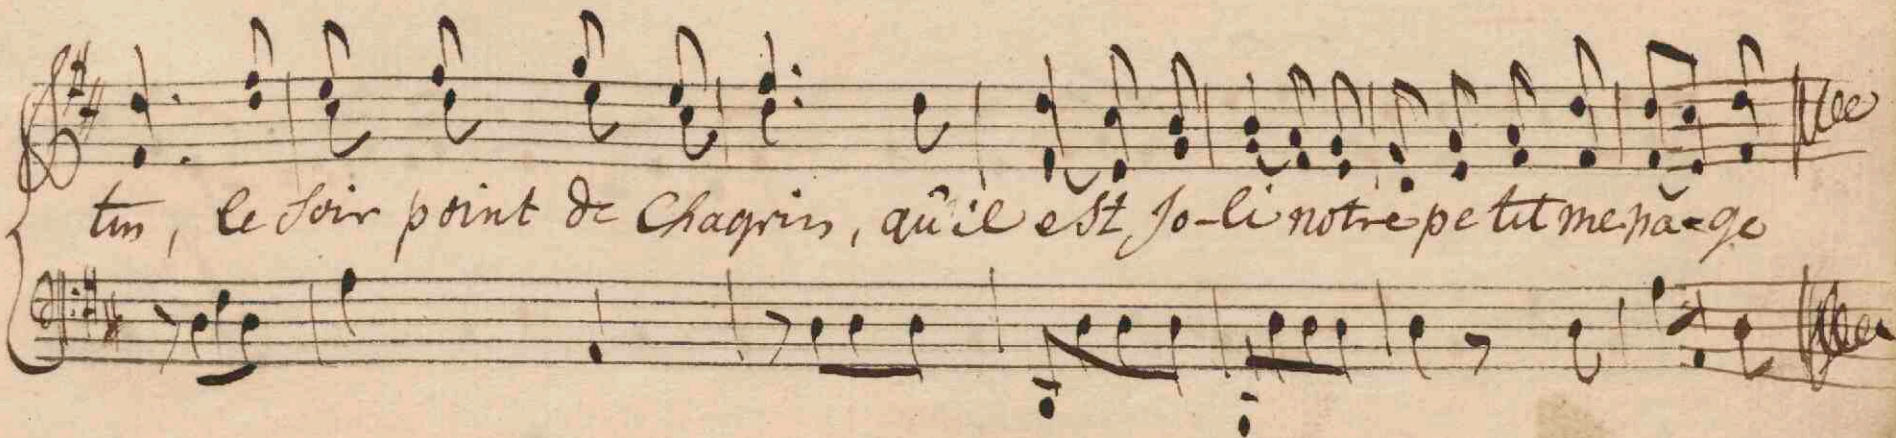 tin, le soir point de Chagrin, qu'il est Jo-li notre petit mena-ge